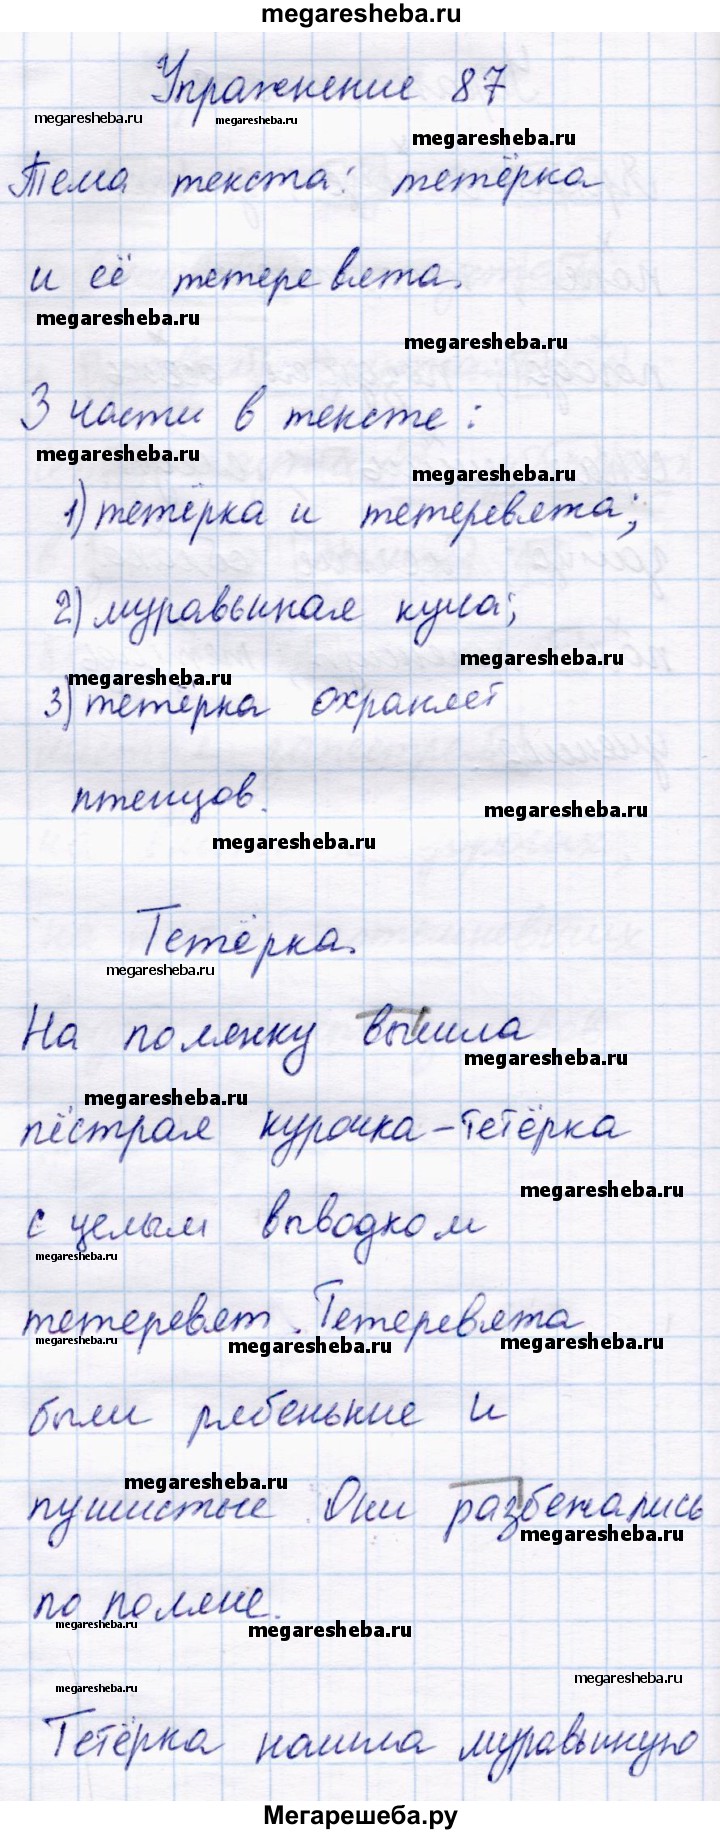 megaresheba.ru
Упражнение 87
megaresheba.ru megaresheba.ru megaresheba.ru
Тема текста: тетёрка
и её тетеревята.
megaresheba.ru megaresheba.ru
3 части в тексте:
megaresheba.ru megaresheba.ru
1) тетёрка и тетеревята;
2) муравьиная куча;
megaresheba.ru megaresheba.ru
3) тетёрка охраняет
птенцов.
megaresheba.ru megaresheba.ru
Тетёрка.
megaresheba.ru
На полянку вышла
megaresheba.ru megaresheba.ru
пёстрая курочка-тетёрка
megaresheba.ru
с целым выводком
megaresheba.ru
тетеревят. Тетеревята
megaresheba.ru megaresheba.ru megaresheba.ru
были рябенькие и
megaresheba.ru
пушистые. Они разбежались
megaresheba.ru
по поляне.
megaresheba.ru megaresheba.ru
megaresheba.ru megaresheba.ru
Тетёрка нашла муравьиную
Мегарешеба.ру